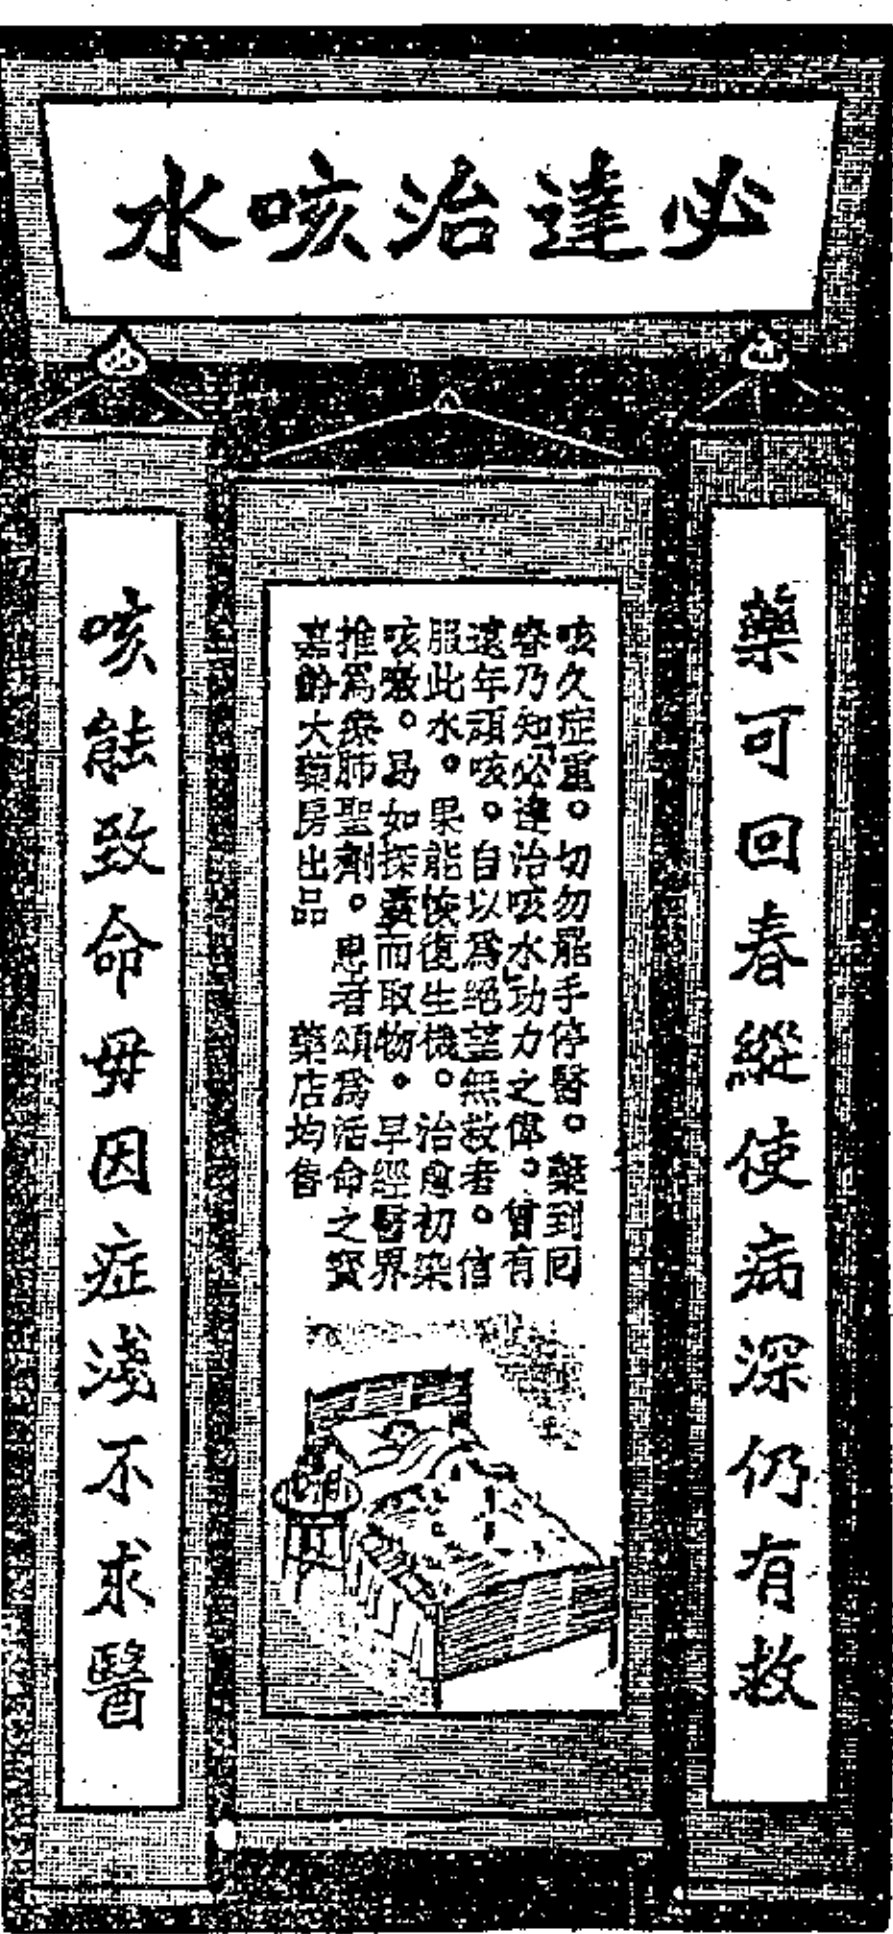 必達治咳水
藥可回春縱使病深仍有救
咳久症重。切勿罷手停醫。藥到回
春乃知「必達治咳水」功力之偉。曾有
遠年頑咳。自以爲絕望無救者。信
服此水。果能恢復生機。治愈初染
咳嗽。易如探囊而取物。早經醫界
推爲療肺聖劑。患者頌爲活命之寶
嘉齡大藥房出品 藥店均售
咳能致命毋因症淺不求醫